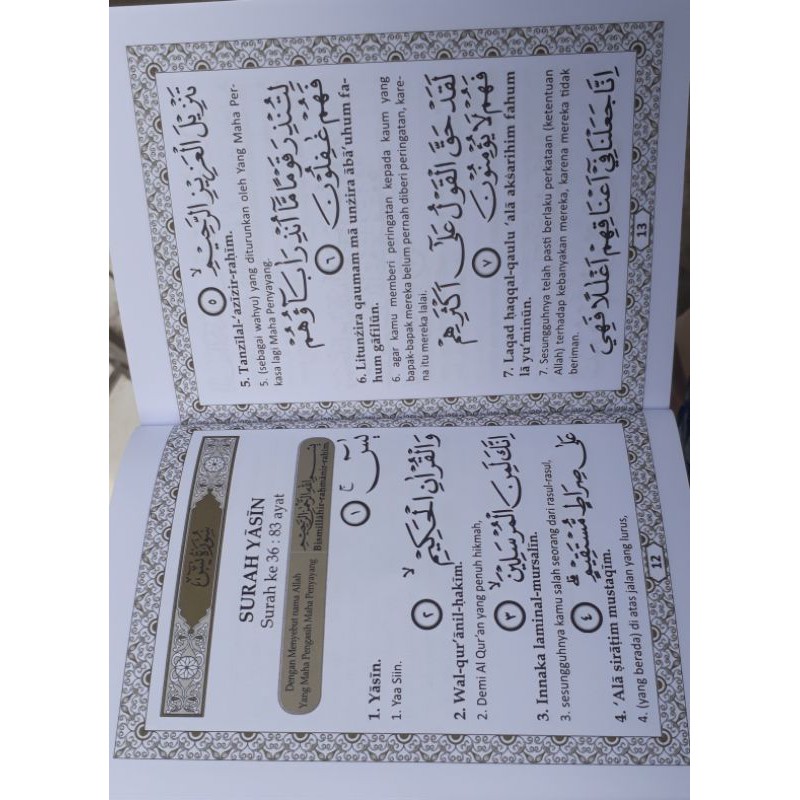 سُوْرَةُ يٰسٓ
SURAH YĀSĪN
Surah ke 36 : 83 ayat
Dengan Menyebut nama Allah
Yang Maha Pengasih Maha Penyayang
بِسْمِ اللّٰهِ الرَّحْمٰنِ الرَّحِيْمِ
Bismillāhir-raḥmānir-raḥīm
يٰسۤ ۚ ۝١
1. Yāsīn.
1. Yaa Siin.
وَالْقُرْاٰنِ الْحَكِيْمِۙ ۝٢
2. Wal-qur’ānil-ḥakīm.
2. Demi Al Qur’an yang penuh hikmah,
اِنَّكَ لَمِنَ الْمُرْسَلِيْنَۙ ۝٣
3. Innaka laminal-mursalīn.
3. sesungguhnya kamu salah seorang dari rasul-rasul,
عَلٰى صِرَاطٍ مُّسْتَقِيْمٍۗ ۝٤
4. ‘Alā ṣirāṭim mustaqīm.
4. (yang berada) di atas jalan yang lurus,
12
تَنْزِيْلَ الْعَزِيْزِ الرَّحِيْمِۙ ۝٥
5. Tanzīlal-‘azīzir-raḥīm.
5. (sebagai wahyu) yang diturunkan oleh Yang Maha Per-
kasa lagi Maha Penyayang.
لِتُنْذِرَ قَوْمًا مَّآ اُنْذِرَ اٰبَاۤؤُهُمْ
فَهُمْ غٰفِلُوْنَ ۝٦
6. Litunżira qaumam mā unżira ābā’uhum fa-
hum gāfilūn.
6. agar kamu memberi peringatan kepada kaum yang
bapak-bapak mereka belum pernah diberi peringatan, kare-
na itu mereka lalai.
لَقَدْ حَقَّ الْقَوْلُ عَلٰٓى اَكْثَرِهِمْ
فَهُمْ لَا يُؤْمِنُوْنَ ۝٧
7. Laqad ḥaqqal-qaulu ‘alā akṡarihim fahum
lā yu’minūn.
7. Sesungguhnya telah pasti berlaku perkataan (ketentuan
Allah) terhadap kebanyakan mereka, karena mereka tidak
beriman.
اِنَّا جَعَلْنَا فِيْٓ اَعْنَاقِهِمْ اَغْلٰلًا فَهِيَ
13